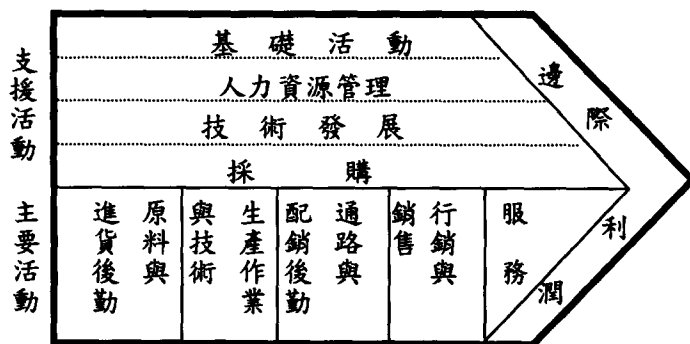 支援活動
基礎活動
人力資源管理
技術發展
採購
主要活動
原料與
進貨後勤
生產作業
與技術
通路與
配銷後勤
行銷與
銷售
服務
邊際利潤